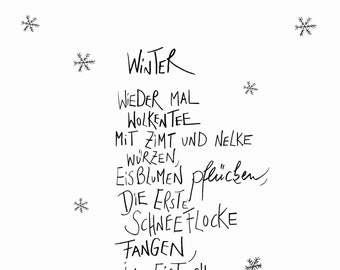 WINTER
WIEDER MAL
WOLKENTEE
MIT ZIMT UND NELKE
WÜRZEN,
EISBLUMEN pflücken,
DIE ERSTE
SCHNEEFLOCKE
FANGEN,